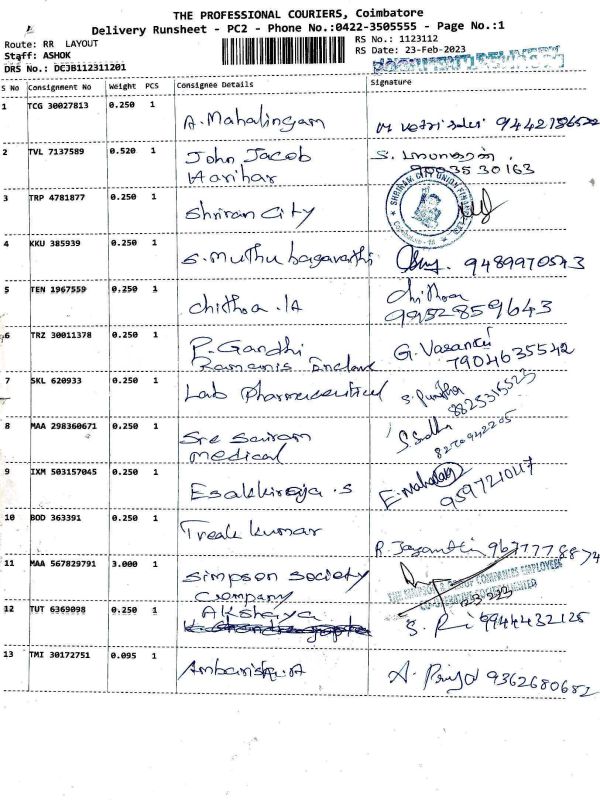 THE PROFESSIONAL COURIERS, Coimbatore
Delivery Runsheet - PC2 - Phone No.:0422-3505555 - Page No.:1
Route: RR LAYOUT
RS No.: 1123112
Staff: ASHOK
RS Date: 23-Feb-2023
DRS No.: DCJB112311201
S No Consignment No Weight PCS Consignee Details Signature
1 TCG 30027813 0.250 1 A. Mahalingam
2 TVL 7137589 0.520 1 John Jacob
Harihar
3 TRP 4781877 0.250 1 Shriran City
SHRIRAM CITY UNION
4 KKU 385939 0.250 1 S. Muthu bagavathi 9489970543
5 TEN 1967559 0.250 1 chithra .IA chithra
9952859643
6 TRZ 30011378 0.250 1 P. Gandhi G. Vasanthi
Ramanis Enclave 7904635542
7 SKL 620933 0.250 1 Lab Pharmaceutical
8825315523
8 MAA 298360671 0.250 1 Sre Sairam S. Sudha
medical
9 IXM 503157045 0.250 1 Esakkiraja .S
10 BOD 363391 0.250 1 kumar
R. Jayanthi
11 MAA 567829791 3.000 1 Simpson Society
Company
12 TUT 6369098 0.250 1 Akshaya
9944432125
13 TMI 30172751 0.095 1 A. Priya 9362680682